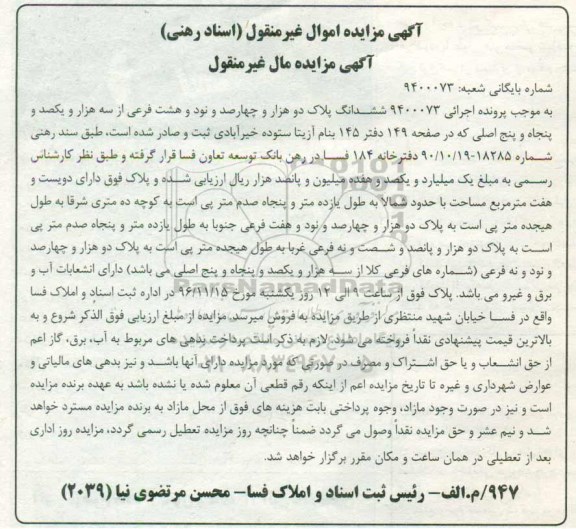 آگهی مزایده اموال غیرمنقول (اسناد رهنی)
آگهی مزایده مال غیرمنقول
شماره بایگانی شعبه: ۹۴۰۰۰۷۳
به موجب پرونده اجرائی ۹۴۰۰۰۷۳ ششدانگ پلاک دو هزار و چهارصد و نود و هشت فرعی از سه هزار و یکصد و
پنجاه و پنج اصلی که در صفحه ۱۴۹ دفتر ۱۴۵ بنام آزیتا ستوده خیرآبادی ثبت و صادر شده است، طبق سند رهنی
شماره ۱۸۲۸۵-۹۰/۱۰/۱۹ دفترخانه ۱۸۴ فسا در رهن بانک توسعه تعاون فسا قرار گرفته و طبق نظر کارشناس
رسمی به مبلغ یک میلیارد و یکصد و هفده میلیون و پانصد هزار ریال ارزیابی شده و پلاک فوق دارای دویست و
هفت مترمربع مساحت با حدود شمالا به طول یازده متر و پنجاه صدم متر پی است به کوچه ده متری شرقا به طول
هیجده متر پی است به پلاک دو هزار و چهارصد و نود و هفت فرعی جنوبا به طول یازده متر و پنجاه صدم متر پی
است به پلاک دو هزار و پانصد و شصت و نه فرعی غربا به طول هیجده متر پی است به پلاک دو هزار و چهارصد
و نود و نه فرعی (شماره های فرعی کلا از سه هزار و یکصد و پنجاه و پنج اصلی می باشد) دارای انشعابات آب و
برق و غیرو می باشد. پلاک فوق از ساعت ۹ الی ۱۲ روز یکشنبه مورخ ۹۶/۱۱/۱۵ در اداره ثبت اسناد و املاک فسا
واقع در فسا خیابان شهید منتظری از طریق مزایده به فروش میرسد. مزایده از مبلغ ارزیابی فوق الذکر شروع و به
بالاترین قیمت پیشنهادی نقداً فروخته می شود. لازم به ذکر است پرداخت بدهی های مربوط به آب، برق، گاز اعم
از حق انشعاب و یا حق اشتراک و مصرف در صورتی که مورد مزایده دارای آنها باشد و نیز بدهی های مالیاتی و
عوارض شهرداری و غیره تا تاریخ مزایده اعم از اینکه رقم قطعی آن معلوم شده یا نشده باشد به عهده برنده مزایده
است و نیز در صورت وجود مازاد، وجوه پرداختی بابت هزینه های فوق از محل مازاد به برنده مزایده مسترد خواهد
شد و نیم عشر و حق مزایده نقداً وصول می گردد ضمناً چنانچه روز مزایده تعطیل رسمی گردد، مزایده روز اداری
بعد از تعطیلی در همان ساعت و مکان مقرر برگزار خواهد شد.
۹۴۷/م.الف- رئیس ثبت اسناد و املاک فسا- محسن مرتضوی نیا (۲۰۳۹)
ParsNamadData